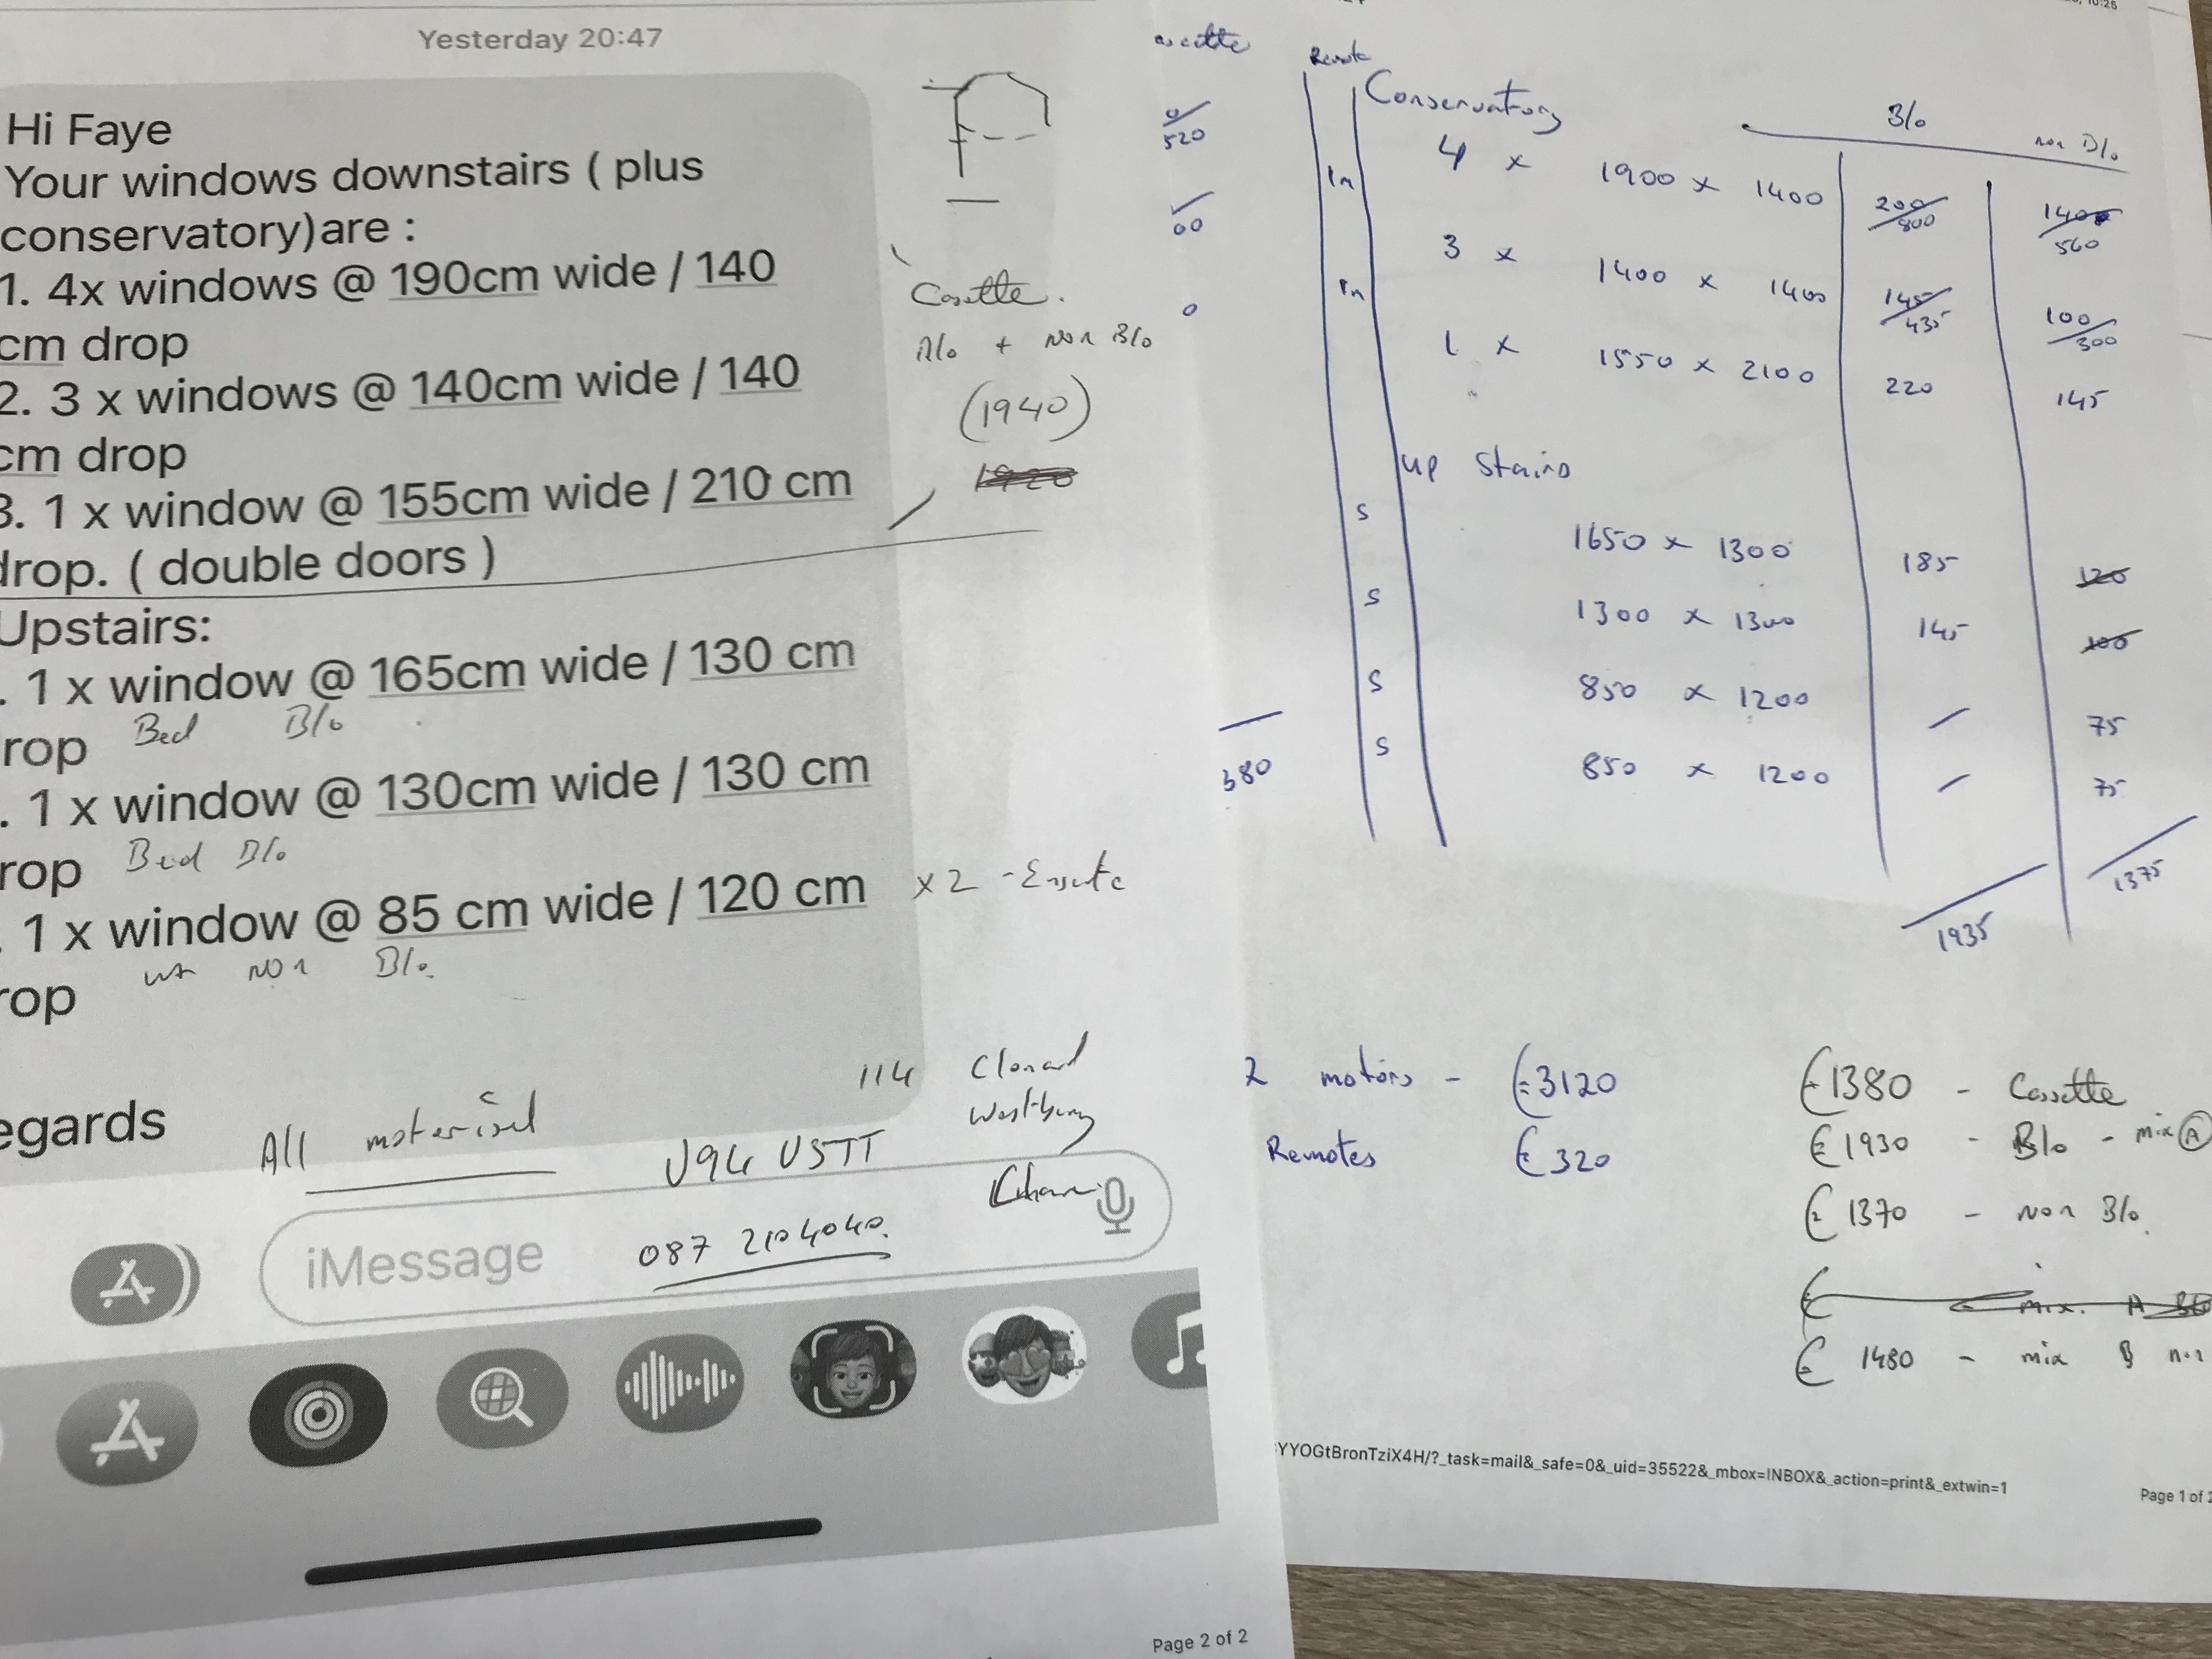 Yesterday 20:47
Hi Faye
Your windows downstairs ( plus
conservatory)are :
1. 4x windows @ 190cm wide / 140
cm drop
2. 3 x windows @ 140cm wide / 140
cm drop
3. 1 x window @ 155cm wide / 210 cm
drop. ( double doors )
Upstairs:
. 1 x window @ 165cm wide / 130 cm
rop Bed Blo
. 1 x window @ 130cm wide / 130 cm
rop Bed Blo
. 1 x window @ 85 cm wide / 120 cm x2 - Ensuite
rop non Blo.
egards
All motorised
114 Clonard
Westbury
U94 USTT
087 2104040.
iMessage
Casette.
Blo + non Blo
(1940)
1920
Page 2 of 2
10:26
Remote
Conservatory
Blo non Blo
520 In 4 x 1900 x 1400 200/800 140/560
60 In 3 x 1400 x 1400 145/435 100/300
0 1 x 1550 x 2100 220 145
up stairs
S 1650 x 1300 185 120
S 1300 x 1300 145 100
S 850 x 1200 / 75
S 850 x 1200 / 75
380
1935 1375
2 motors - €3120
Remotes €320
€1380 - Cassette
€1930 - Blo - mix A
€1370 - non Blo.
€ mix. A Blo
€ 1480 - mix B non
YYOGtBronTziX4H/?_task=mail&_safe=0&_uid=35522&_mbox=INBOX&_action=print&_extwin=1
Page 1 of 2